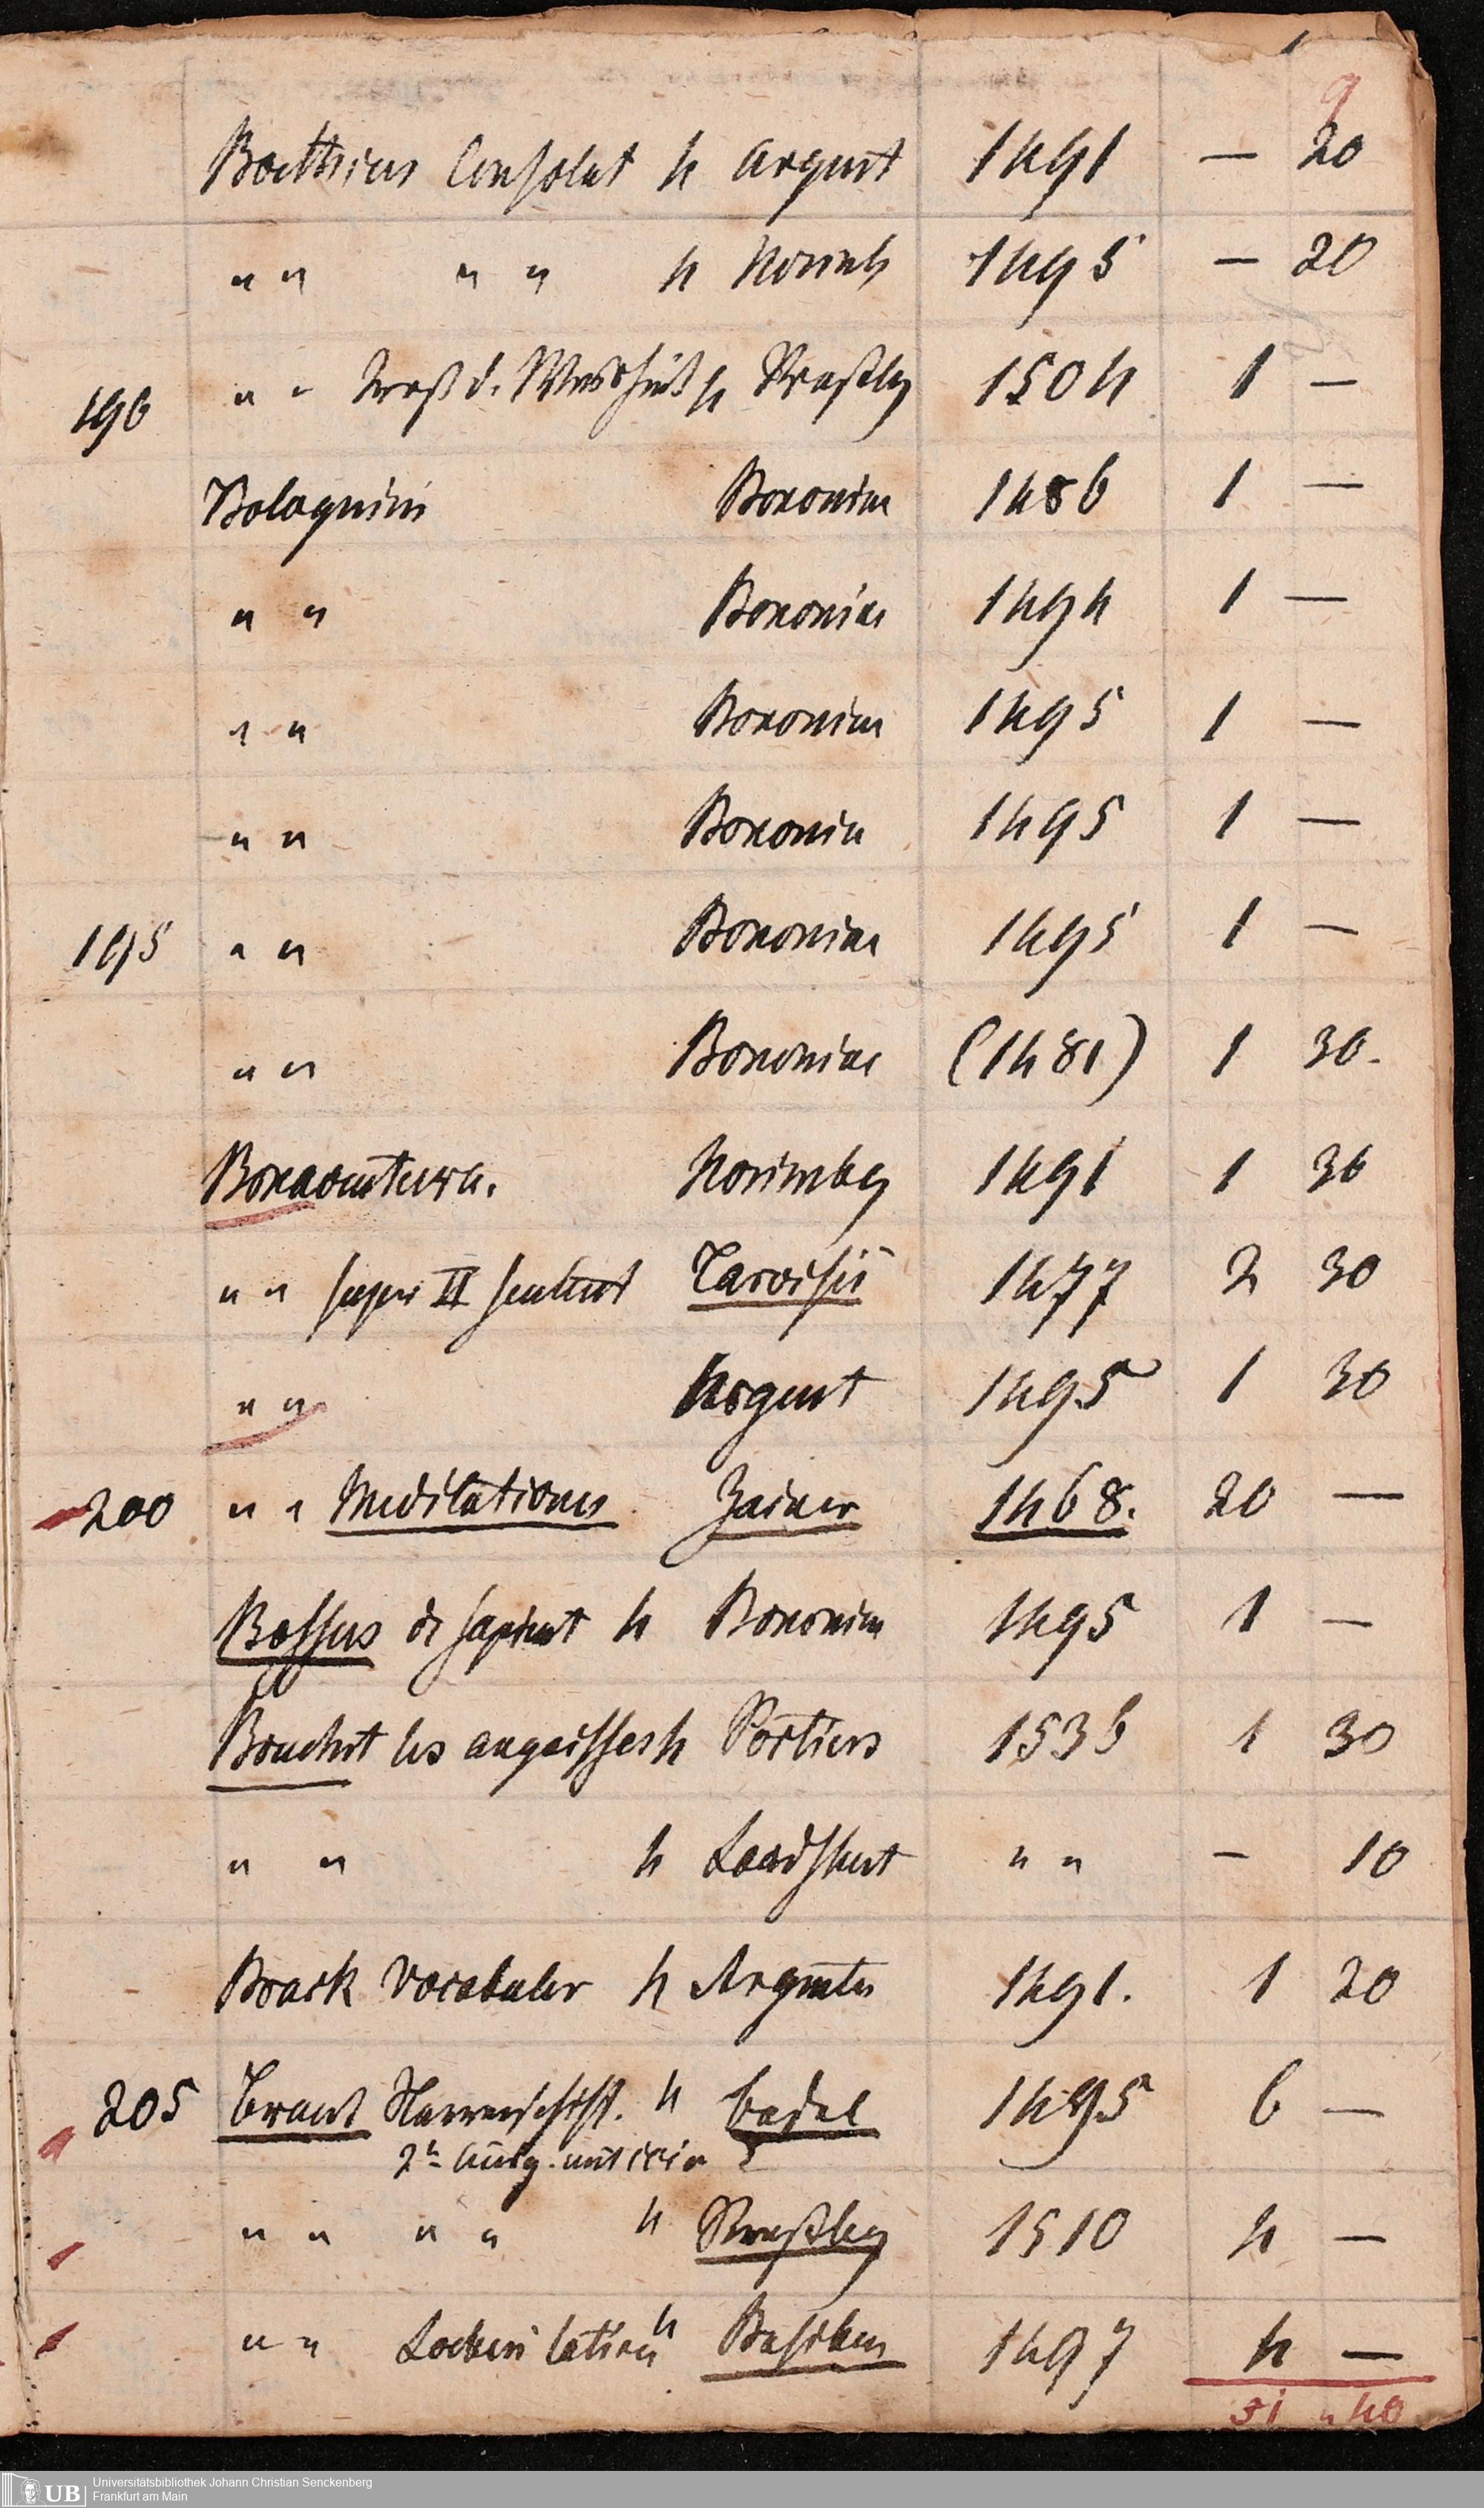 9
Boethius Consolat 4 Argent 1491 — 20
" " " " 4 Norinb 1495 — 20
190 " " Trost d. Weisheit 4 Straßbg 1504 1 —
Bolognini Bononiae 1486 1 —
" " Bononiae 1494 1 —
" " Bononiae 1495 1 —
" " Bononia 1495 1 —
195 " " Bononiae 1495 1 —
" " Bononiae (1481) 1 30.
Bonaventura. Norimbg 1491 1 30
" " super II sentent Tarvisii 1477 2 30
" " Argent 1495 1 30
200 " " Meditationes Zainer 1468. 20 —
Bossus de sapient 4 Bononiae 1495 1 —
Bouchet les angoisses 4 Poitiers 1536 1 30
" " 4 Landshut " " — 10
Brack Vocabular 4 Argmtn 1491. 1 20
205 Brant Narrenschiff. 4 Basel 1495 6 —
2te Ausg. mit
" " " " 4 Straßbg 1510 4 —
" " Locheri latine 4 Basileae 1497 4 —
51 " 40
Universitätsbibliothek Johann Christian Senckenberg
UB Frankfurt am Main